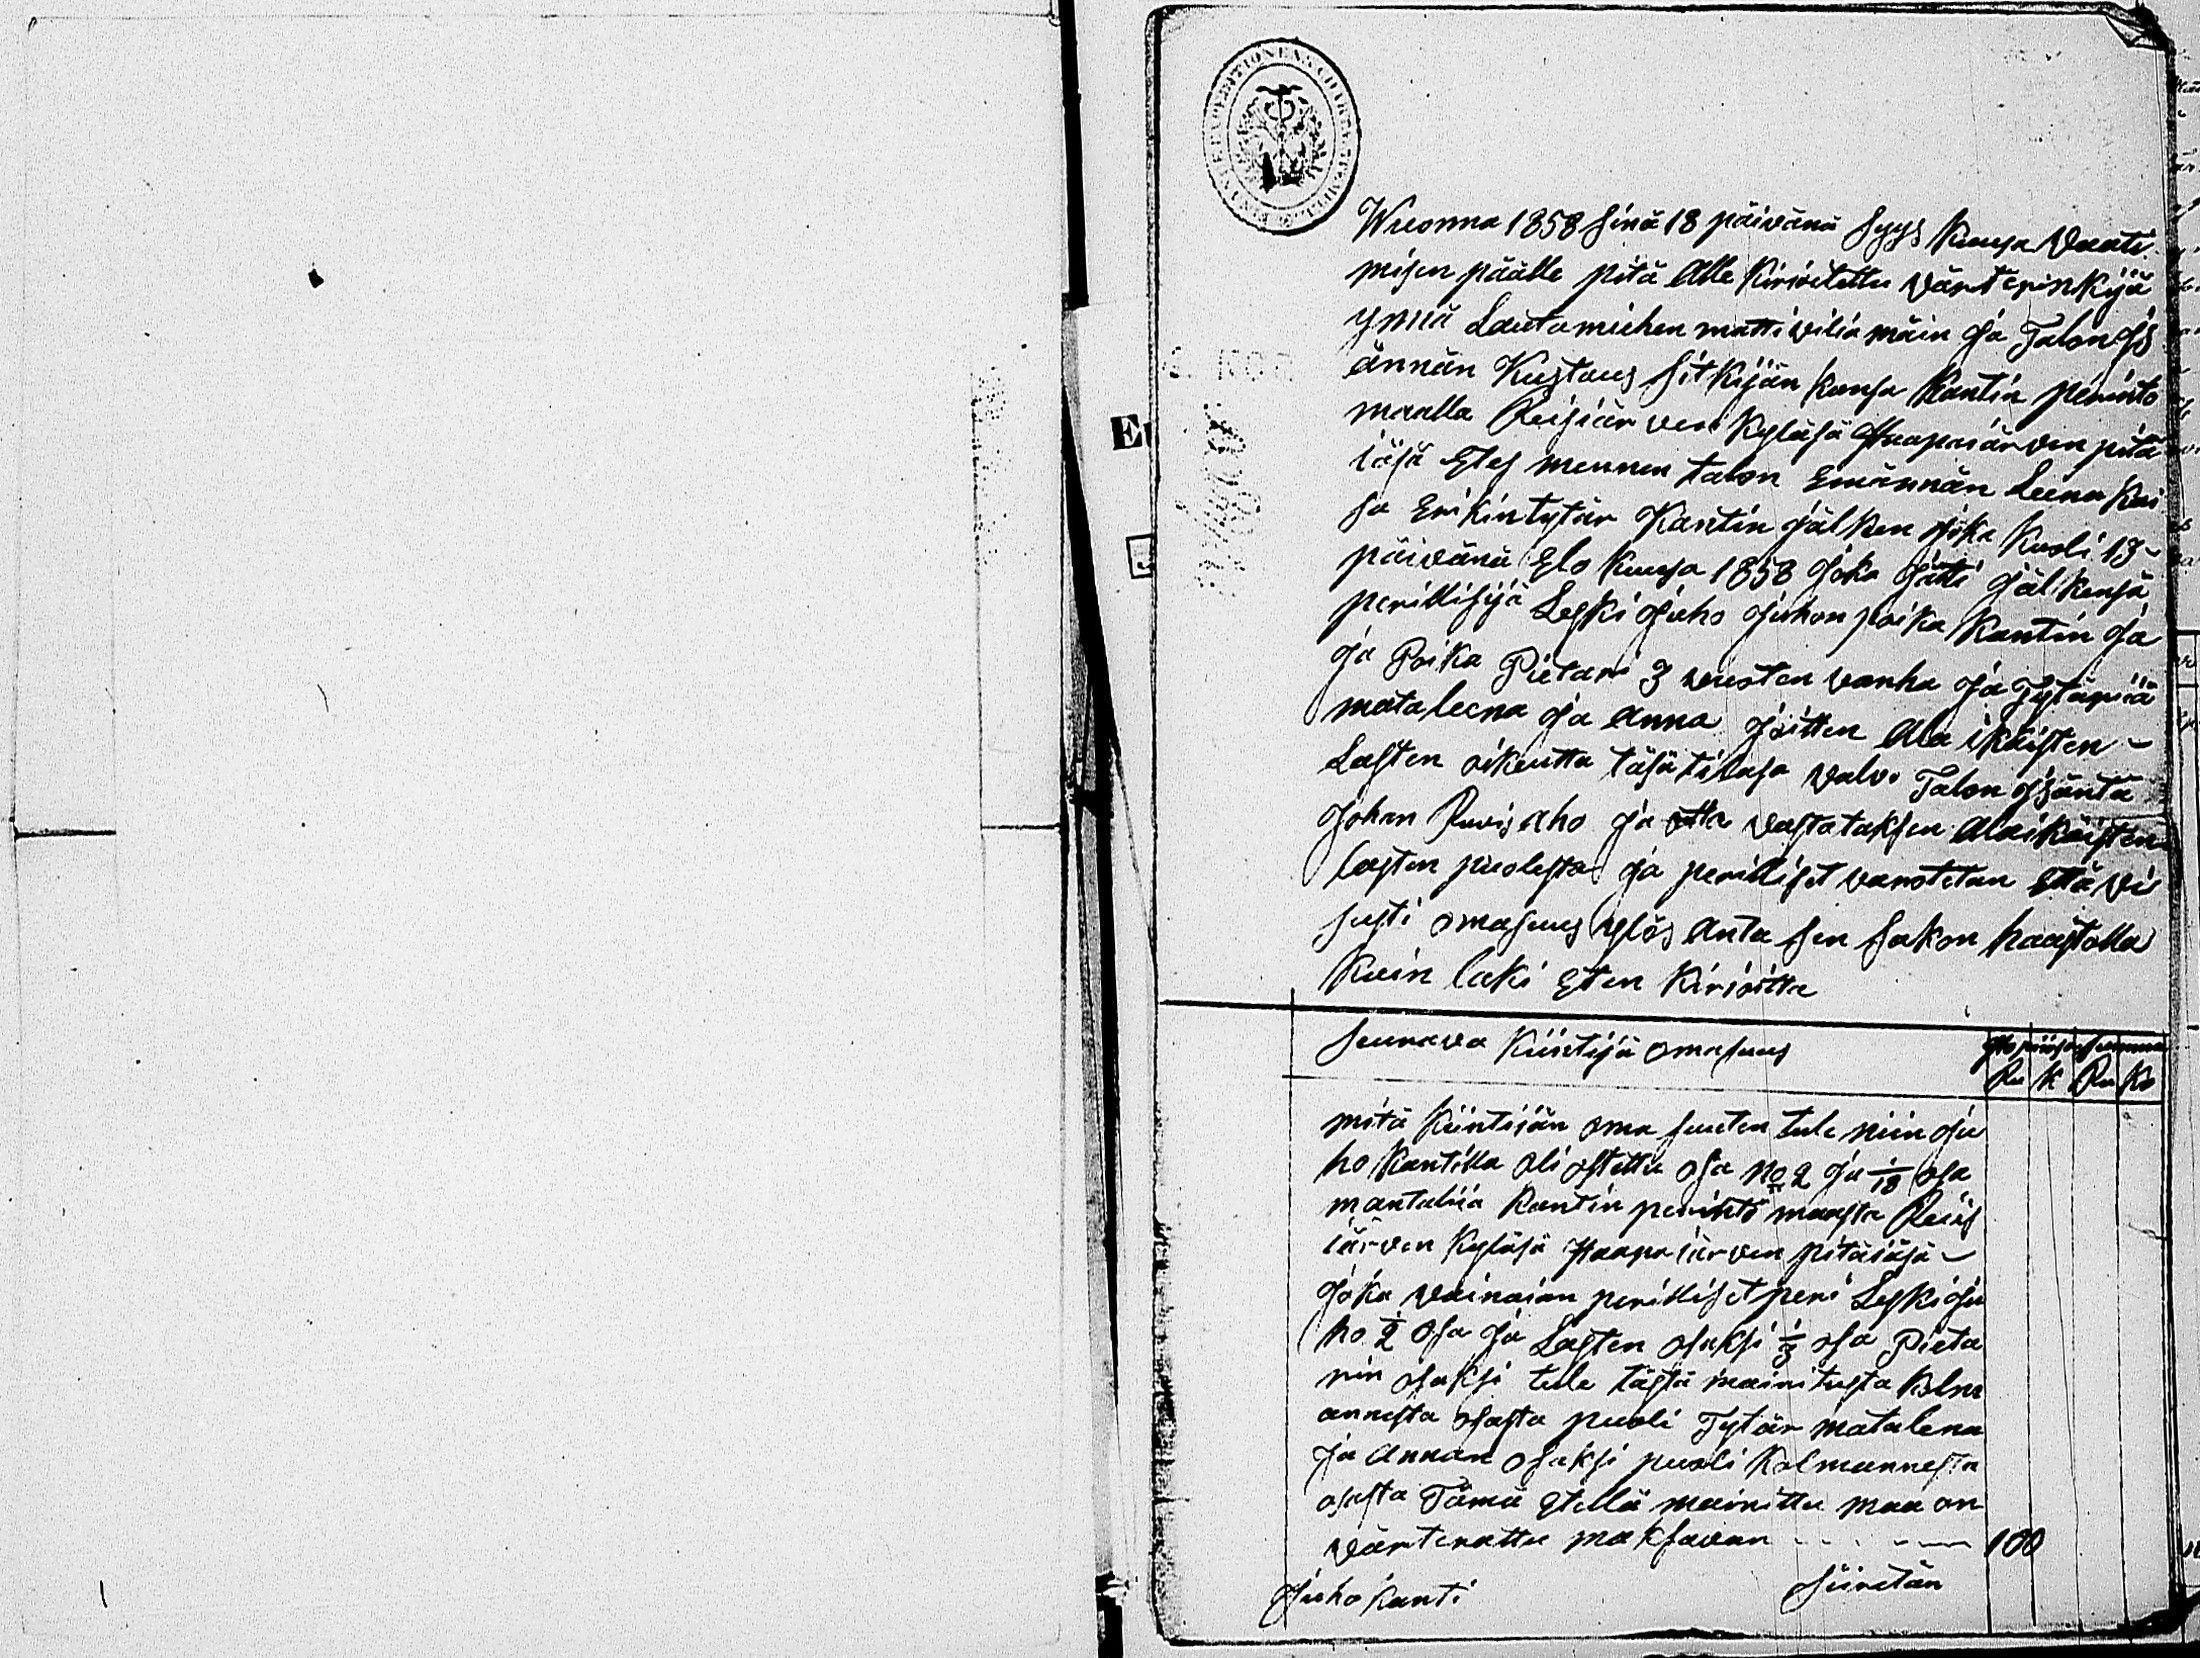 Wuonna 1858 sinä 18 päivänä Syys Kuusa Vaati-
misen päälle pitä Alle Kirioitettu värterinkijä
ynnä Lautamiehen matti viliamäin ja Talon Js
ännän Kustaus sitkijän kansa Kantin perinto
maalla Reisiärven Kyläsä Haapaiärven pitä
iäsä Etes mennen talon Emännän Leena Kai
sa Erikintytär Kantin jälken joka Kuoli 13-
päivänä Elo Kuusa 1858 joka jätti jälkensä
perillisijä Leski Juho Juhon poika Kantin ja
ja Poika Pietari 3 vuosten vanha ja Tytäriä
mataleena ja Anna joitten Ala ikäisten -
Lasten oikeutta täsä tilasa valvo Talon isäntä
Johan Ruisaho ja otta vastataksen Alaikäisten
lasten puolesta ja perilliset varotetan Että vi
susti omasuus ylös Anta sen sakon haastolla
Kuin laki Eten Kirioitta
Seurava Kiintijä omasuus
Ru K Ru Ko
mitä Kiintiän oma suuten tule niin Ju
ho Kantilla oli ostettu osa No 2 ja 1/18 osa
mantalia Kantin perintö maasta Reis
iärven Kyläsä Haapaiärven pitäiäsä -
joka vainaian perilliset peri Leski Ju
ho 1/2 osa ja Lasten osaksi 1/3 osa Pieta
rin osaksi tule tästä mainitusta Kolm
annesta osasta puoli Tytär matalena
ja Annan osaksi puoli Kolmannesta
osasta Tämä Etellä mainittu maa on
värterattu maksavan - - - - 100
Juho Kanti Siiretän